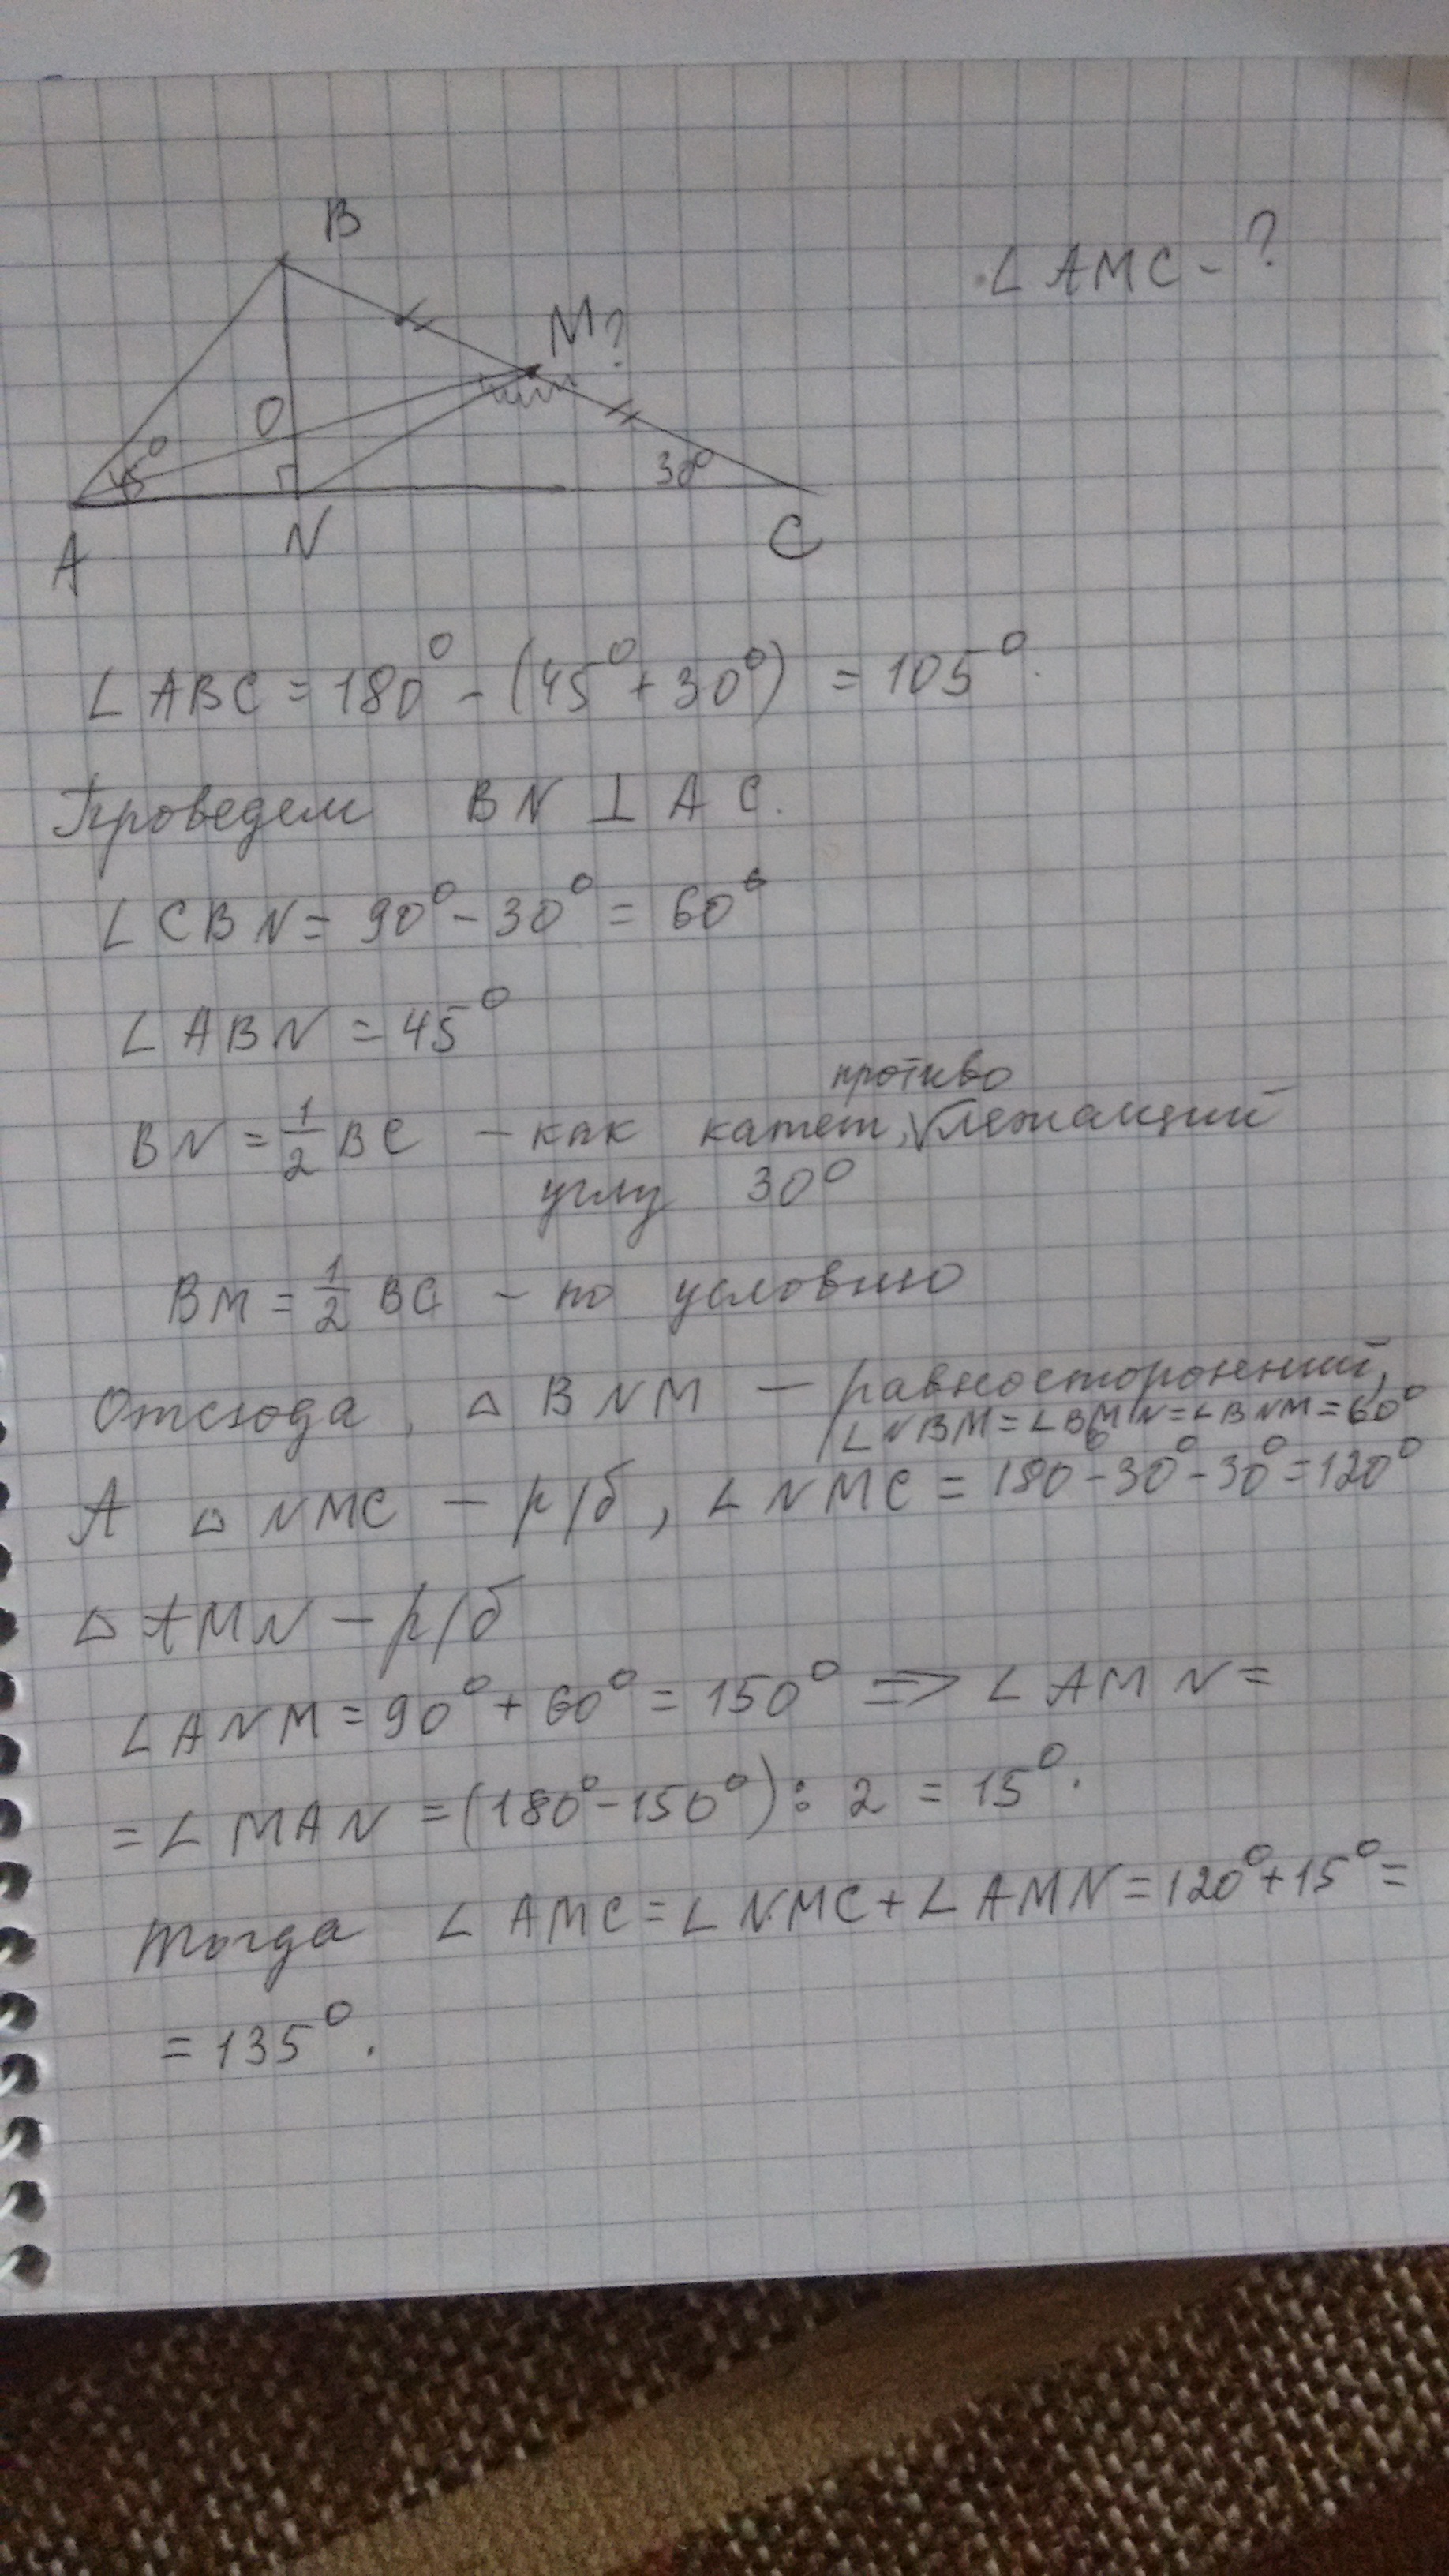 B
∠AMC - ?
M?
O
45°
30°
A
N
C
∠ABC = 180° - (45° + 30°) = 105°.
Проведем BN ⊥ AC.
∠CBN = 90° - 30° = 60°
∠ABN = 45°
противо
BN = 1/2 BC - как катет, √лежащий
углу 30°
BM = 1/2 BC - по условию
Отсюда, △BNM - равносторонний,
∠NBM = ∠BMN = ∠BNM = 60°
А △NMC - р/б, ∠NMC = 180° - 30° - 30° = 120°
△AMN - р/б
∠ANM = 90° + 60° = 150° => ∠AMN =
= ∠MAN = (180° - 150°) : 2 = 15°.
Тогда ∠AMC = ∠NMC + ∠AMN = 120° + 15° =
= 135°.